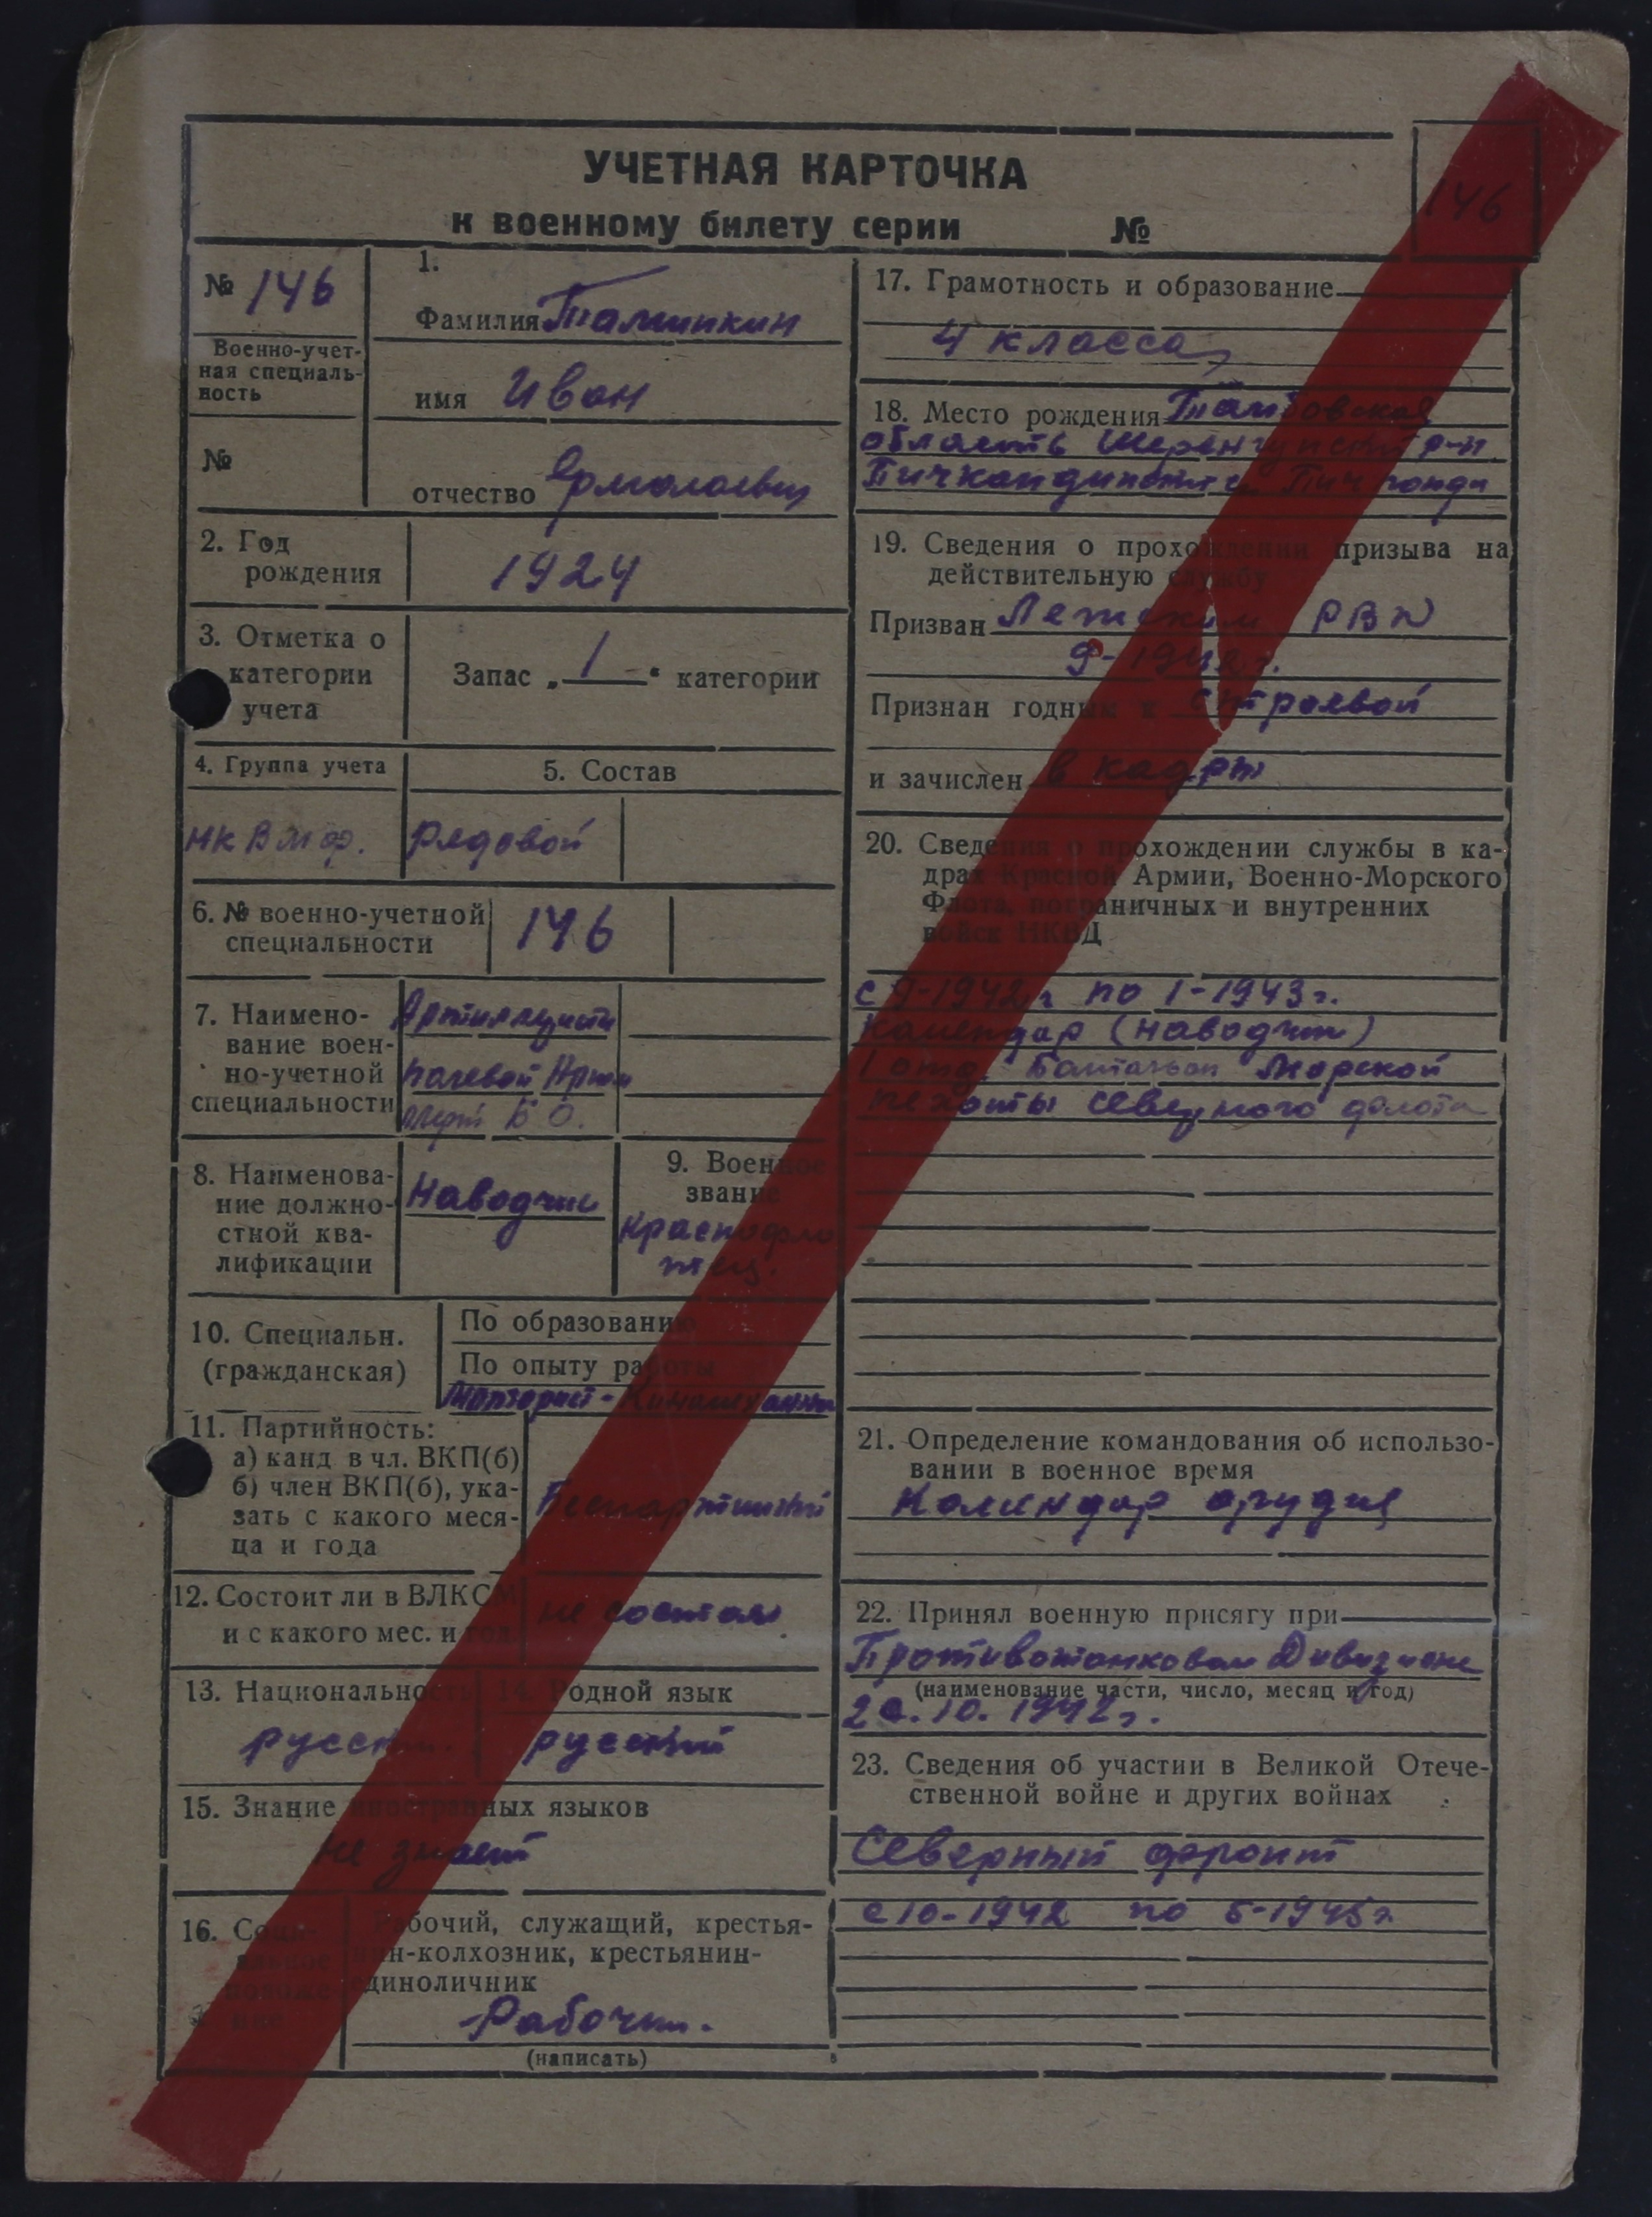 УЧЕТНАЯ КАРТОЧКА
к военному билету серии №
146
№ 146
Военно-учет-
ная специаль-
ность
№
1.
Фамилия
имя Иван
отчество Ермолаевич
2. Год
рождения
1924
3. Отметка о
категории
учета
Запас „ 1 “ категории
4. Группа учета
5. Состав
рядовой
6. № военно-учетной
специальности
146
7. Наимено-
вание воен-
но-учетной
специальности
8. Наименова-
ние должно-
стной ква-
лификации
Наводчик
9. Военное
звание
Краснофло
тец.
10. Специальн.
(гражданская)
По образованию
По опыту работы
11. Партийность:
а) канд в чл. ВКП(б)
б) член ВКП(б), ука-
зать с какого меся-
ца и года
Беспартийный
12. Состоит ли в ВЛКСМ
и с какого мес. и год.
не состоял
13. Национальность
русский.
14. Родной язык
русский
15. Знание иностранных языков
не знает
16. Соци-
альное
положе
ние
Рабочий, служащий, крестья-
нин-колхозник, крестьянин-
единоличник
Рабочий.
(написать)
17. Грамотность и образование
4 класса
18. Место рождения Тамбовская
область р-н
19. Сведения о прохождении призыва на
действительную службу
Призван РВК
9-1942 г.
Признан годным к строевой
и зачислен в кадры
20. Сведения о прохождении службы в ка-
драх Красной Армии, Военно-Морского
Флота, пограничных и внутренних
войск НКВД
с 9-1942 г по 1-1943 г.
(наводчик)
1 отд. Батальон Морской
пехоты северного флота
21. Определение командования об использо-
вании в военное время
орудия
22. Принял военную присягу при
Противотанковом Дивизионе
(наименование части, число, месяц и год)
10. 1942 г.
23. Сведения об участии в Великой Отече-
ственной войне и других войнах
Северный фронт
с 10-1942 по 5-1945 г.